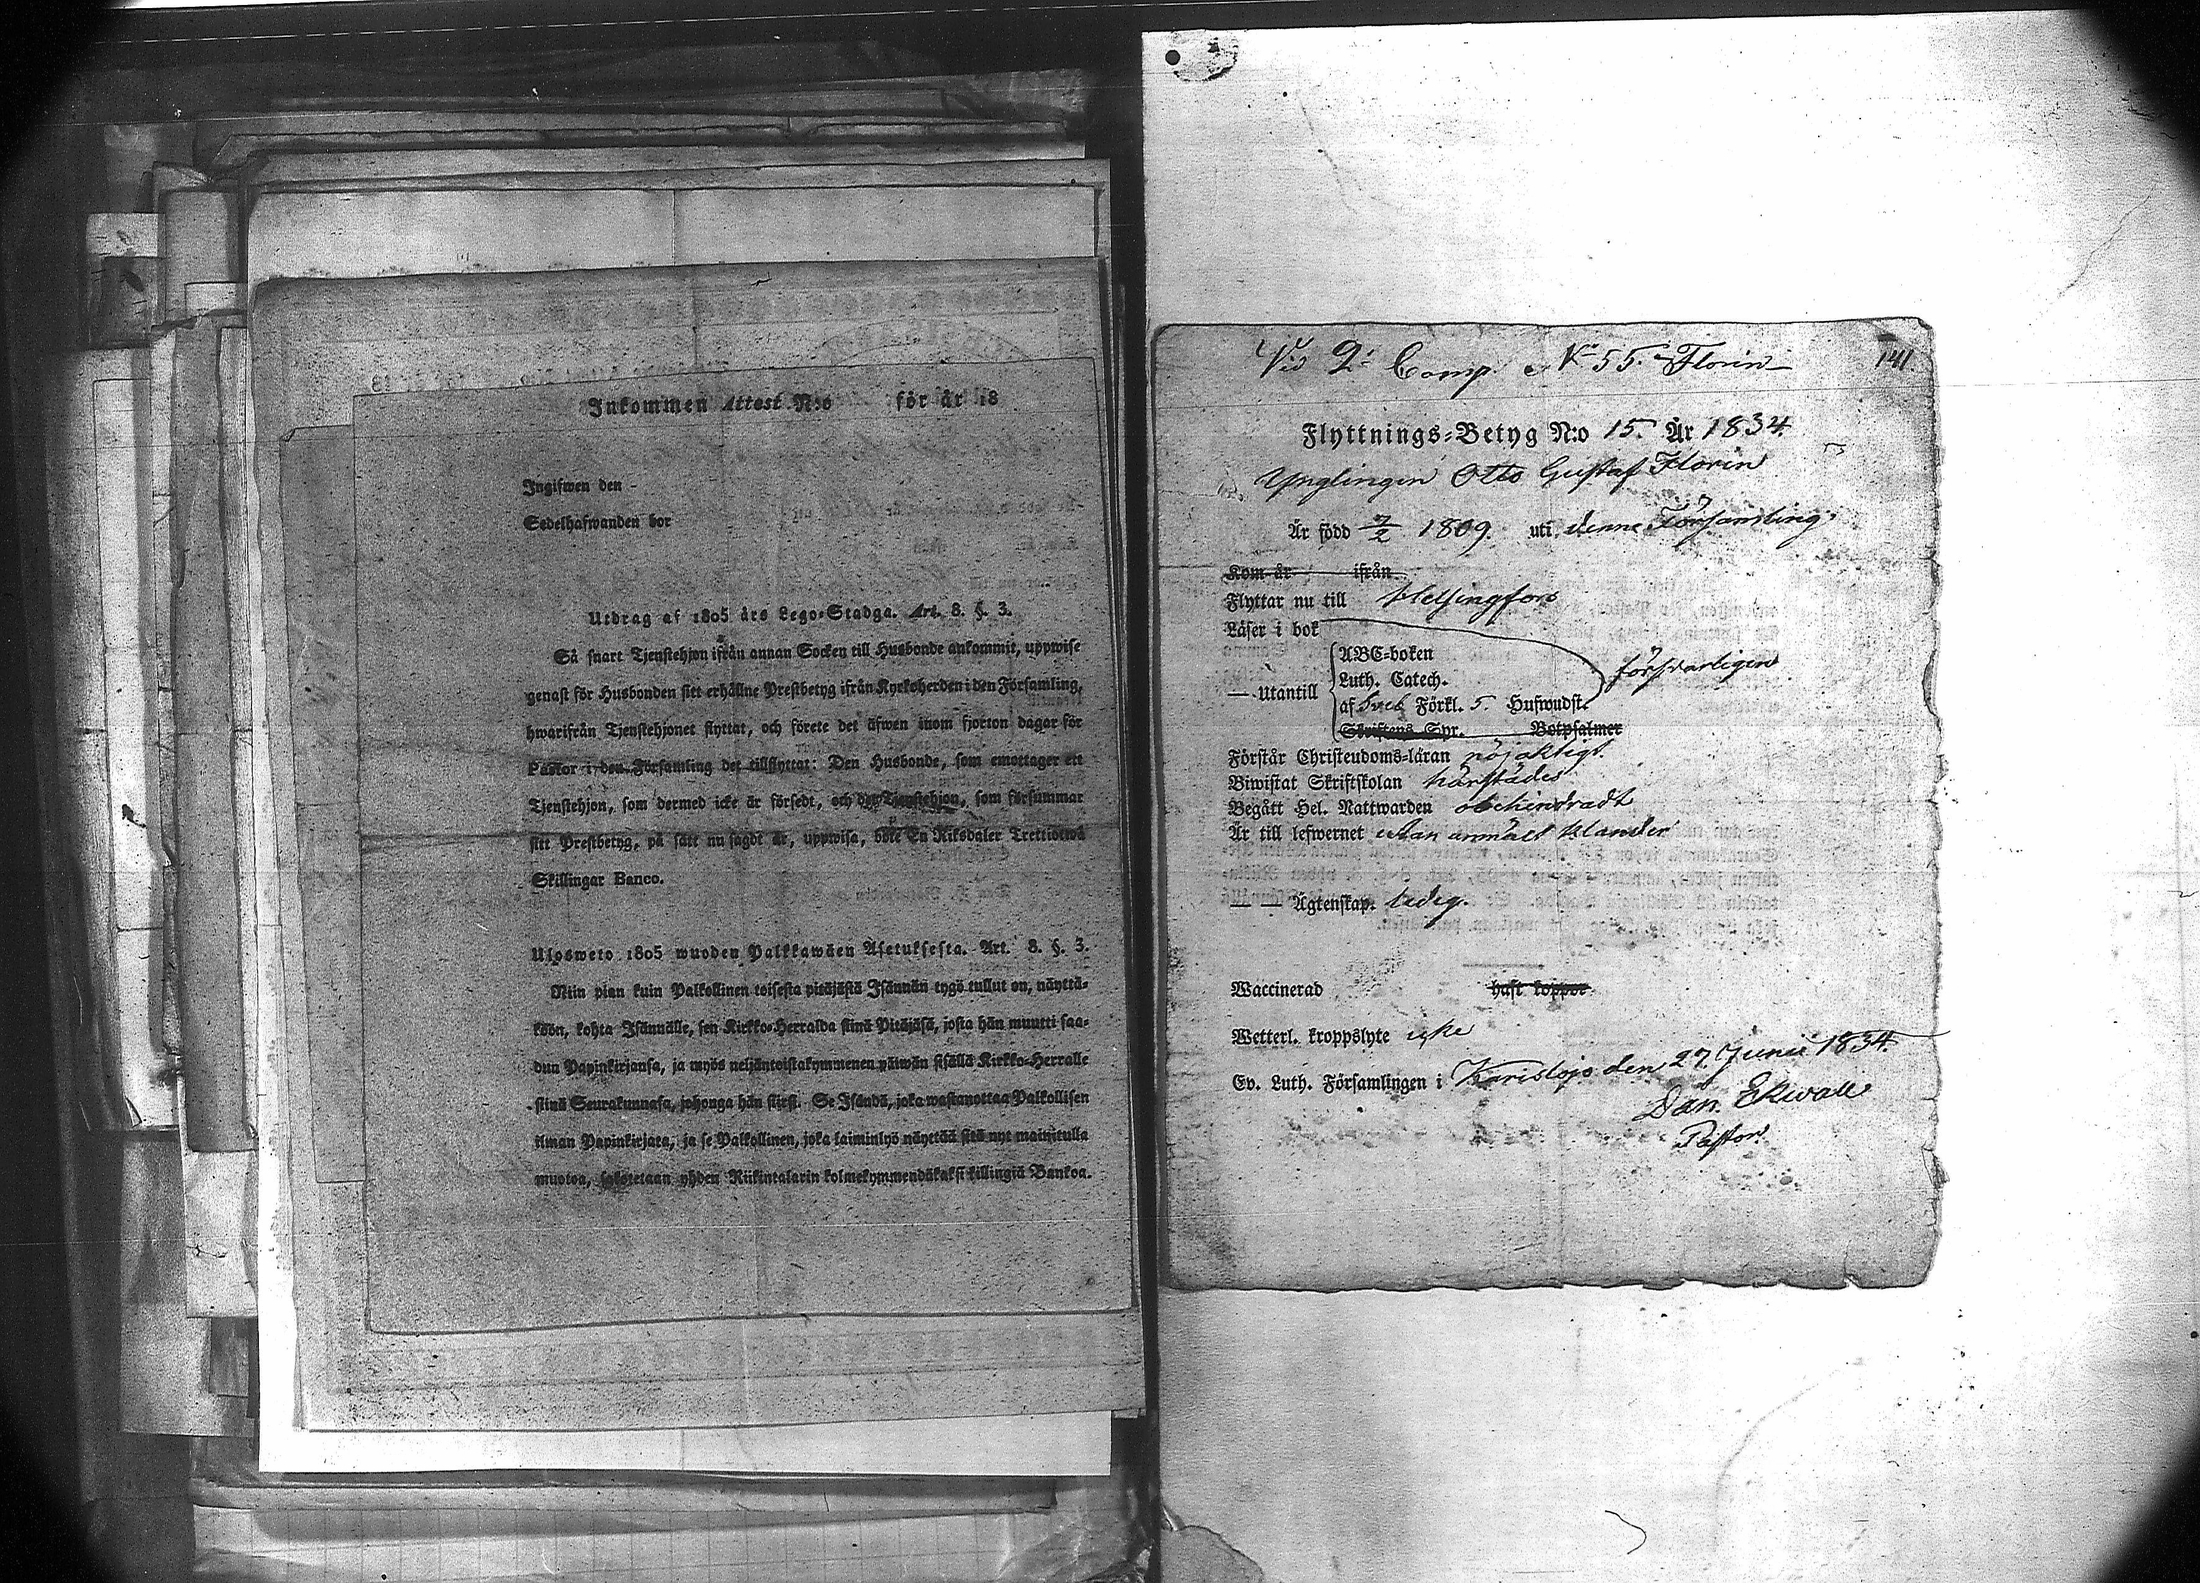 Inkommen Attest N:o för år 18
Ingifwen den -
Sedelhafwanden bor
Utdrag af 1805 års Lego-Stadga. Art. 8. §. 3.
Så snart Tjenstehjon ifrån annan Socken till Husbonde ankommit, uppwise
genast för Husbonden sitt erhållne Prestbetyg ifrån Kyrkoherden i den Församling,
hwarifrån Tjenstehjonet flyttat, och förete det äfwen inom fjorton dagar för
Pastor i den Församling det tillflyttat: Den Husbonde, som emottager ett
Tjenstehjon, som dermed icke är försedt, och det Tjenstehjon, som försummar
sitt Prestbetyg, på sätt nu sagdt är, uppwisa, böte En Riksdaler Trettiotwå
Skillingar Banco.
Ulosweto 1805 wuoden Palkkawäen Asetuksesta. Art. 8. §. 3.
Niin pian kuin Palkollinen toisesta pitäjästä Isännän tygö tullut on, näyttä-
köön, kohta Isännälle, sen Kirkko-Herralda siinä Pitäjäsä, josta hän muutti saa-
dun Papinkirjansa, ja myös neljäntoistakymmenen päiwän sisällä Kirkko-Herralle
siinä Seurakunnasa, johonga hän siirsi. Se Isändä, joka wastanottaa Palkollisen
ilman Papinkirjata, ja se Palkollinen, joka laiminlyö näyttää sitä nyt mainitulla
muotoa, sakotetaan yhden Riikintalarin kolmekymmendäkaksi killingiä Bankoa.
Vid 2: Comp. N 55. Florin 141.
Flyttnings-Betyg N:o 15. År 1834.
Ynglingen Otto Gustaf Florin
Är född 7/2 1809. uti denna Församling.
Kom år ifrån
Flyttar nu till Helsingfors
Läser i bok
ABC-boken
Luth. Catech. försvarligen
— Utantill
af Sveb Förkl. 5 Hufwudst.
Skriftens Spr. Botpsalmer
Förstår Christendoms-läran nöjaktigt.
Biwistat Skriftskolan härstädes
Begått Hel. Nattwarden obehindradt
Är till lefwernet utan anmält klander
— — Ägtenskap. ledig.
Waccinerad haft koppor
Wetterl. kroppslyte icke
Ev. Luth. Församlingen i Karislojo den 27 Junii 1834.
Dan. Ekwall
Pastor.